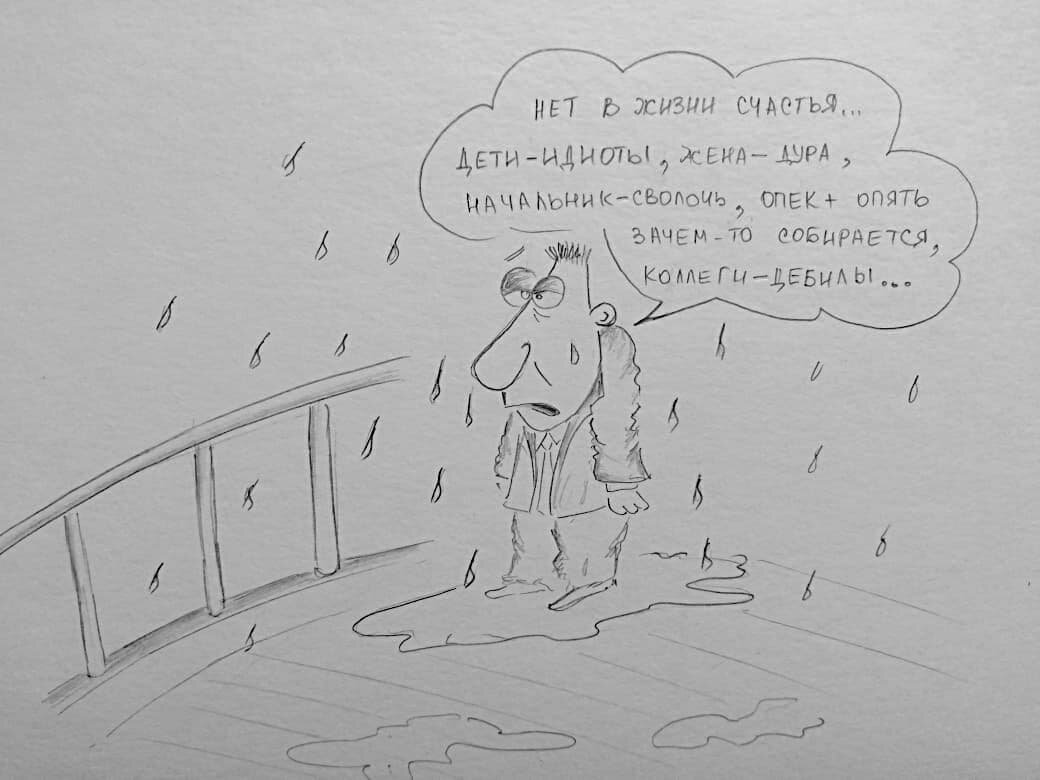 НЕТ В ЖИЗНИ СЧАСТЬЯ...
ДЕТИ-ИДИОТЫ, ЖЕНА-ДУРА,
НАЧАЛЬНИК-СВОЛОЧЬ, ОПЕК+ ОПЯТЬ
ЗАЧЕМ-ТО СОБИРАЕТСЯ,
КОЛЛЕГИ-ДЕБИЛЫ...